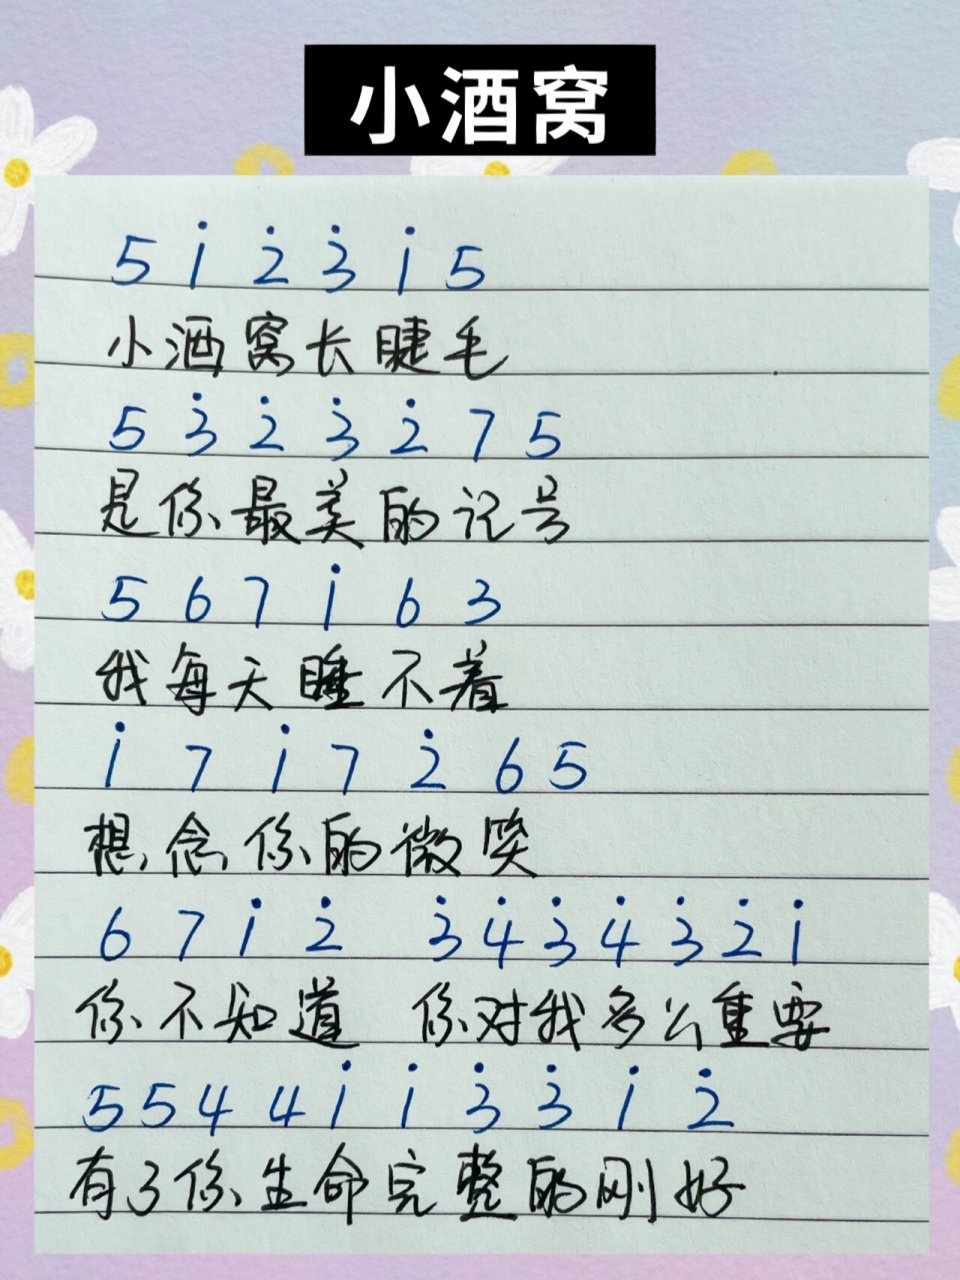 小酒窝
5 1̇ 2̇ 3̇ 1̇ 5
小酒窝长睫毛
5 3̇ 2̇ 3̇ 2̇ 7 5
是你最美的记号
5 6 7 1̇ 6 3
我每天睡不着
1̇ 7 1̇ 7 2̇ 6 5
想念你的微笑
6 7 1̇ 2̇ 3̇ 4̇ 3̇ 4̇ 3̇ 2̇ 1̇
你不知道 你对我多么重要
5 5 4 4 1̇ 1̇ 3̇ 3̇ 1̇ 2̇
有了你生命完整的刚好